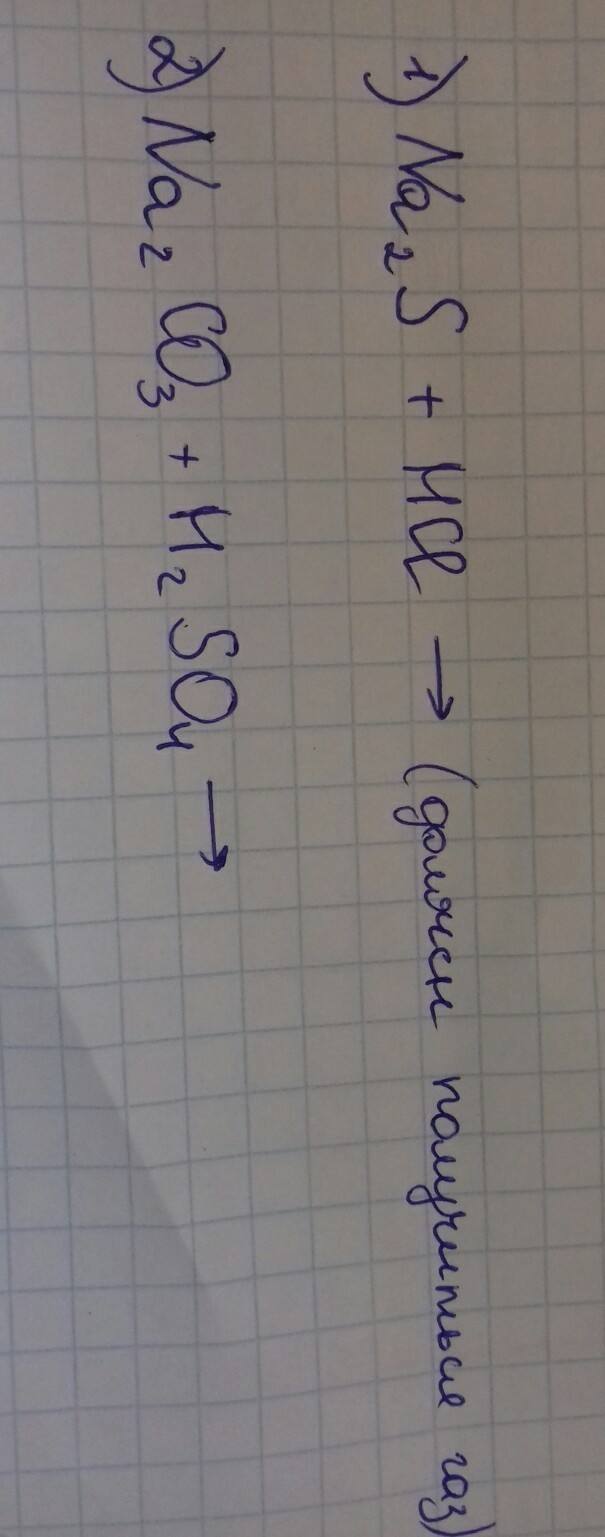 1) Na₂S + HCl → (должен получиться газ)
2) Na₂CO₃ + H₂SO₄ →